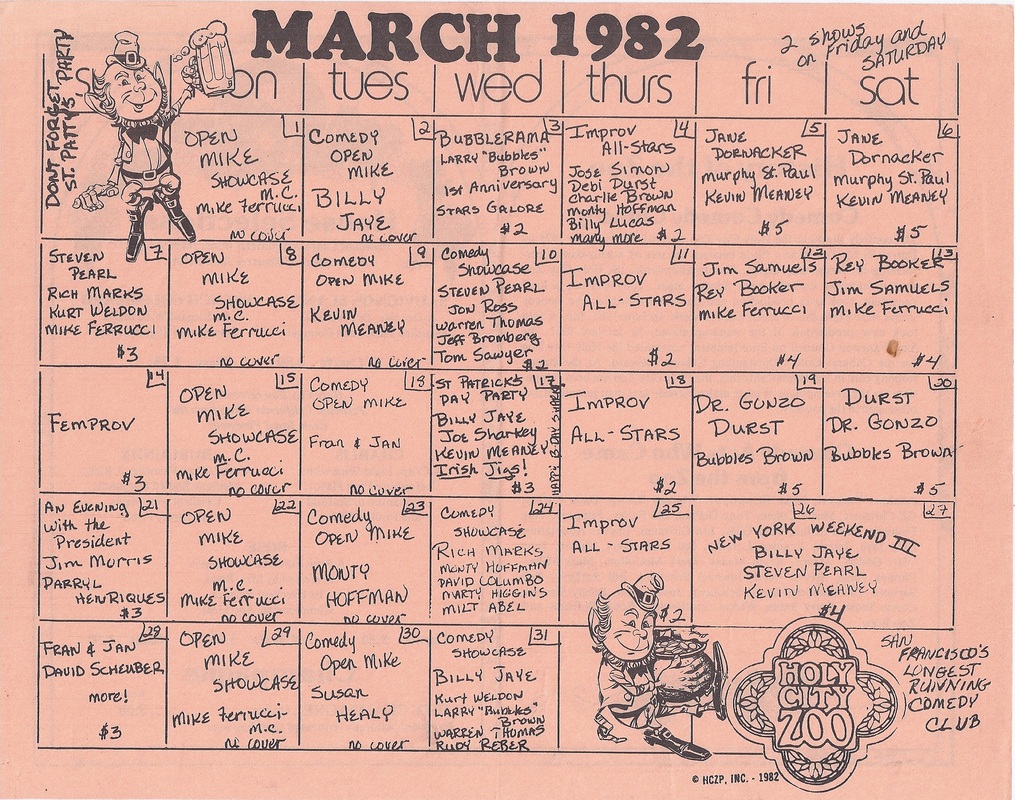 MARCH 1982
2 shows
on Friday and
SATURDAY
DON'T FORGET
ST. PATTY'S PARTY
S on tues wed thurs fri sat
1
OPEN
MIKE
SHOWCASE
M.C.
Mike Ferrucci
no cover
2
COMEDY
OPEN
MIKE
BILLY
JAYE
no cover
3
BUBBLERAMA
LARRY "Bubbles"
Brown
1st Anniversary
STARS GALORE
$2
4
Improv
All-Stars
Jose Simon
Debi Durst
Charlie Brown
Monty Hoffman
Billy Lucas
many more $2
5
JANE
DORNACKER
murphy St. Paul
KEVIN MEANEY
$5
6
JANE
Dornacker
murphy St. Paul
KEVIN MEANEY
$5
7
STEVEN
PEARL
RICH MARKS
KURT WELDON
MIKE FERRUCCI
$3
8
OPEN
MIKE
SHOWCASE
m.c.
Mike Ferrucci
no cover
9
COMEDY
OPEN MIKE
KEVIN
MEANEY
no cover
10
Comedy
Showcase
STEVEN PEARL
Jon Ross
Warren Thomas
Jeff Bromberg
Tom Sawyer
$2
11
IMPROV
ALL-STARS
$2
12
Jim Samuels
Rey Booker
Mike Ferrucci
$4
13
REY BOOKER
Jim SAMUELS
Mike Ferrucci
$4
14
FEMPROV
$3
15
OPEN
MIKE
SHOWCASE
m.c.
Mike Ferrucci
no cover
COMEDY
OPEN MIKE
Fran & JAN
no cover
17
ST PATRICK'S
DAY PARTY
BILLY JAYE
Joe Sharkey
KEVIN MEANEY
Irish Jigs!
$3
HAPPY B-DAY SHARK
18
IMPROV
ALL-STARS
$2
19
DR. GONZO
DURST
Bubbles Brown
$5
20
DURST
DR. GONZO
Bubbles Brown
$5
21
AN EVENING
with the
President
Jim Morris
DARRYL
HENRIQUES
$3
22
OPEN
MIKE
SHOWCASE
M.C.
MIKE Ferrucci
no cover
23
Comedy
OPEN MIKE
MONTY
HOFFMAN
no cover
24
COMEDY
SHOWCASE
RICH MARKS
MONTY HOFFMAN
DAVID COLUMBO
MARTY HIGGINS
MILT ABEL
25
Improv
ALL-STARS
$2
26 27
NEW YORK WEEKEND III
BILLY JAYE
STEVEN PEARL
KEVIN MEANEY
$4
28
FRAN & JAN
DAVID SCHEUBER
more!
$3
29
OPEN
MIKE
SHOWCASE
Mike Ferrucci-
m.c.
no cover
30
Comedy
Open Mike
Susan
HEALY
no cover
31
COMEDY
SHOWCASE
BILLY JAYE
Kurt WELDON
LARRY "Bubbles"
Brown
WARREN THOMAS
RUDY REBER
HOLY
CITY
ZOO
SAN
FRANCISCO'S
LONGEST
RUNNING
COMEDY
CLUB
© HCZP, INC. - 1982